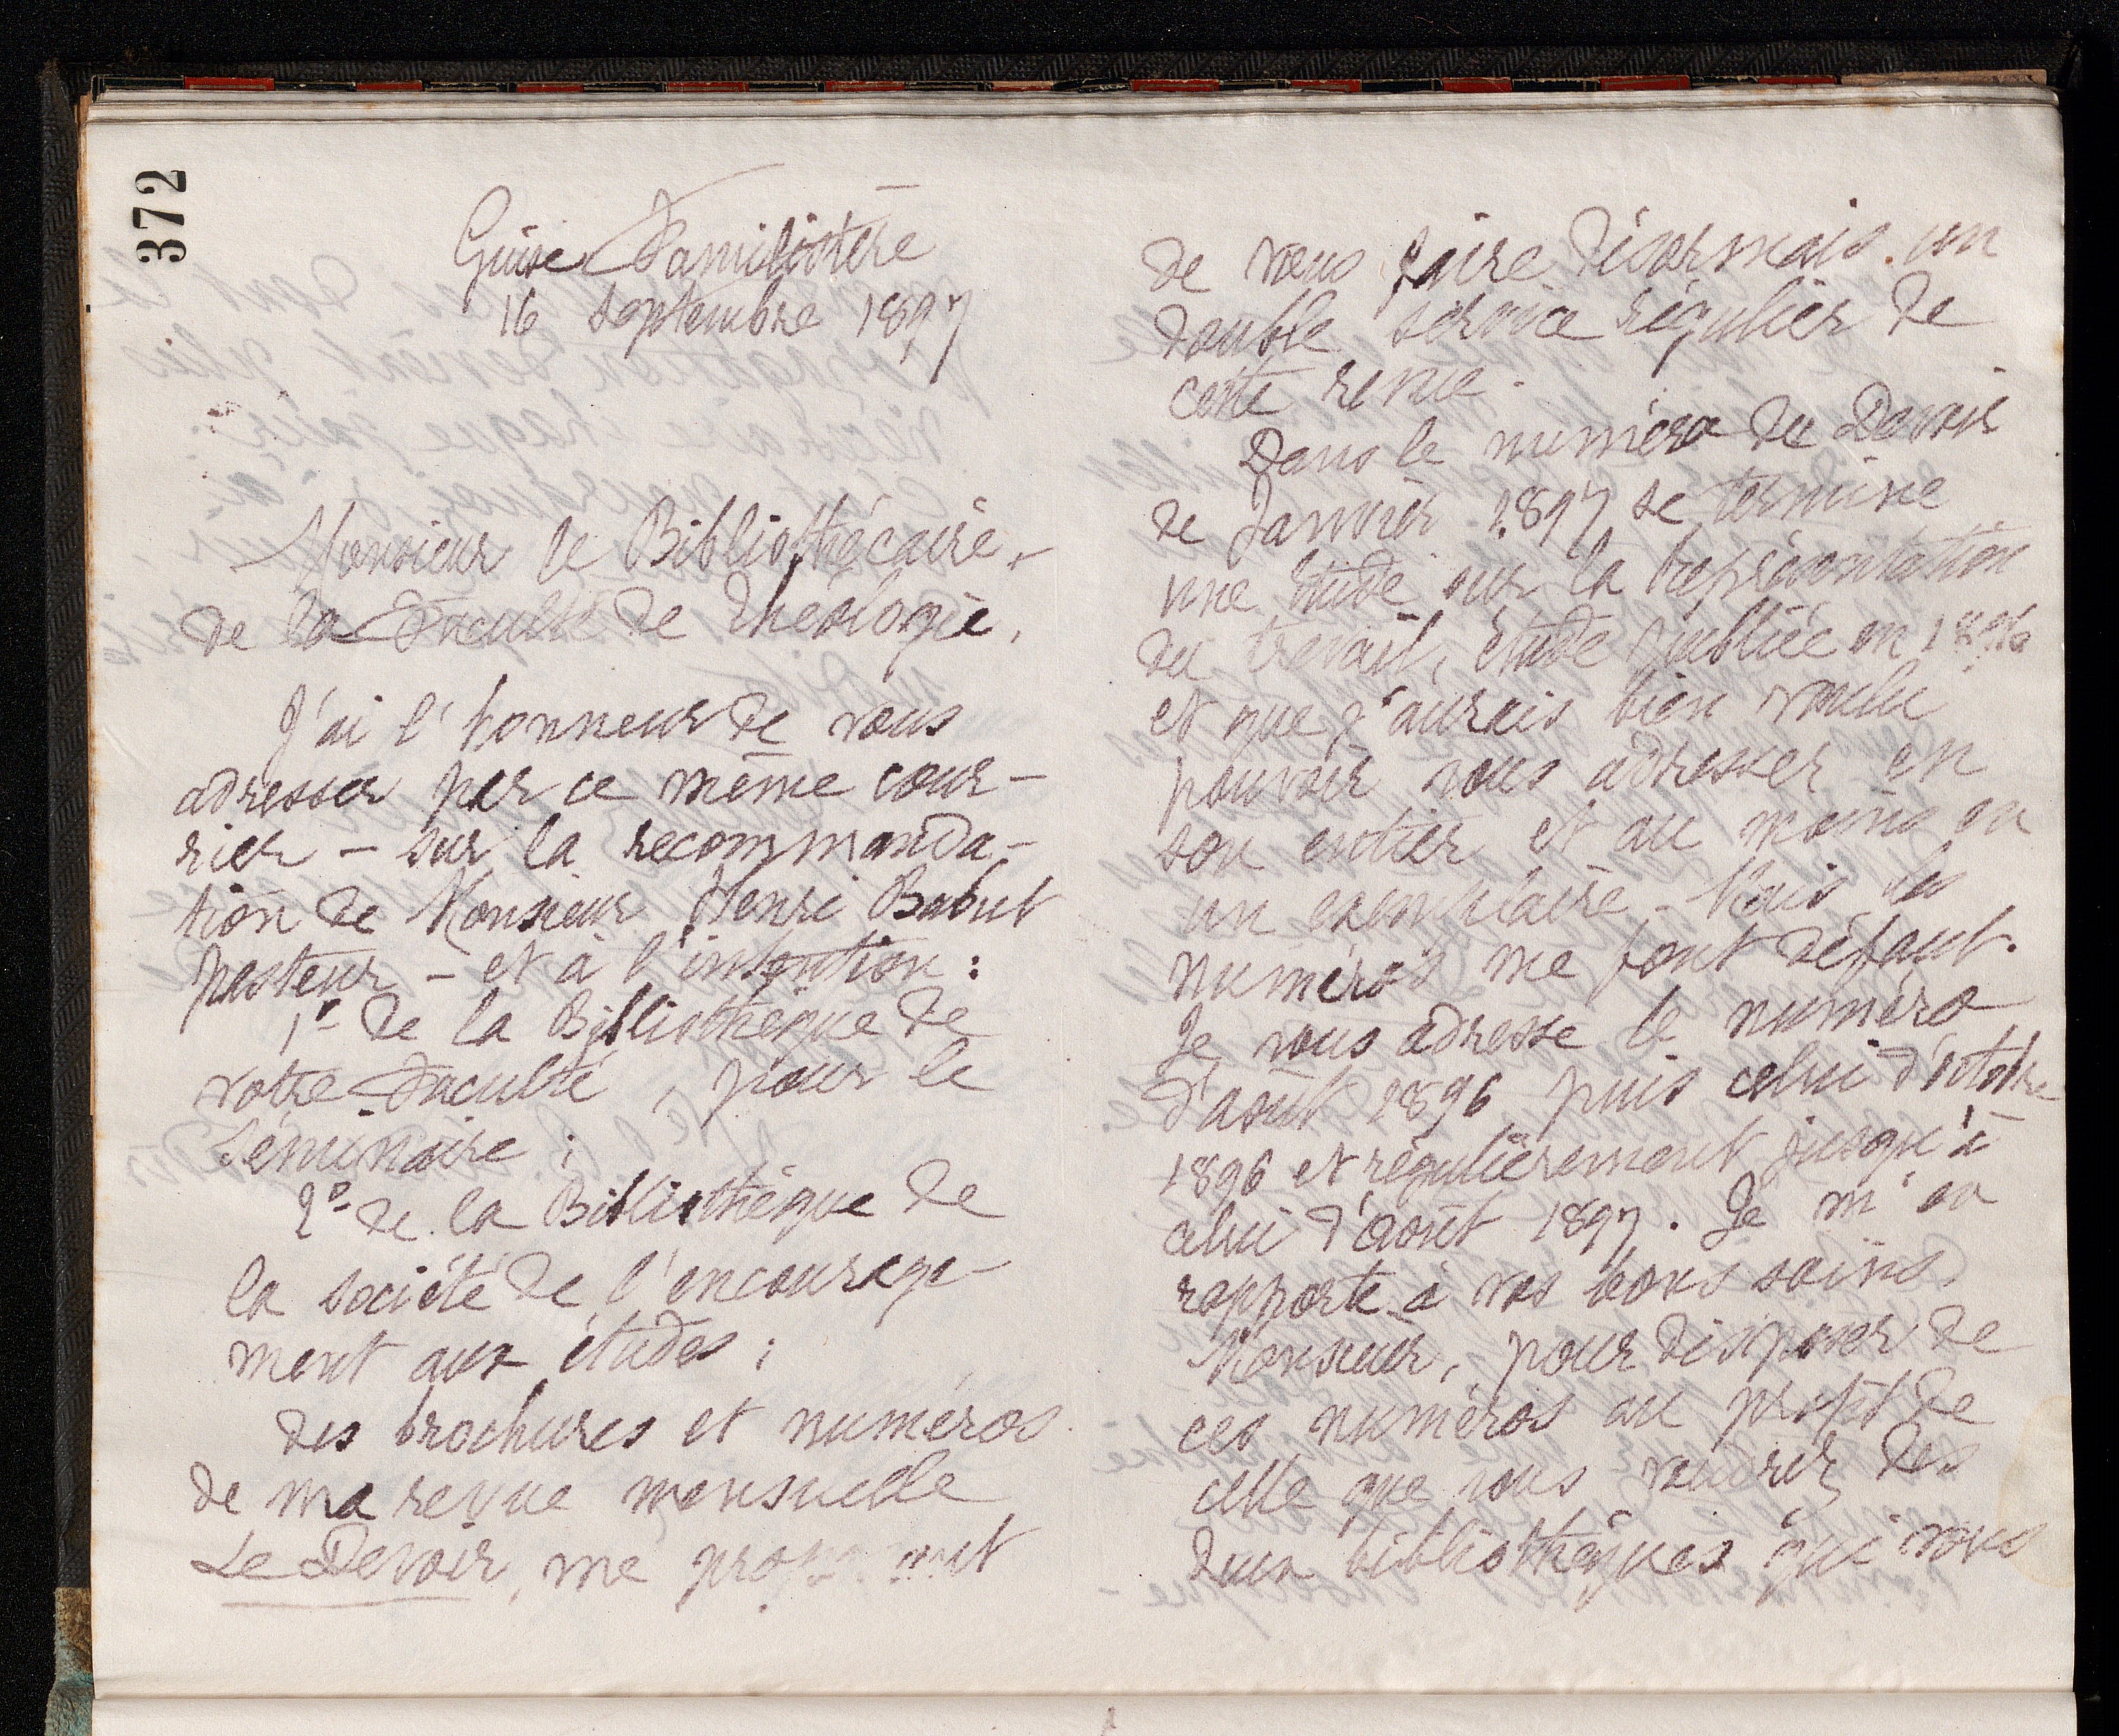 372
Guise Familistère
16 septembre 1897
Monsieur le Bibliothécaire
de la Faculté de Théologie,
J'ai l'honneur de vous
adresser par ce même cour-
rier - sur la recommanda-
tion de Monsieur Henri Babut
pasteur - et à l'intention :
1° de la Bibliothèque de
votre Faculté, pour le
Séminaire ;
2° de la Bibliothèque de
la société de l'encourage-
ment aux études ;
des brochures et numéros
de ma revue mensuelle
Le Devoir, me proposant
de vous faire désormais un
double service régulier de
cette revue.
Dans le numéro du Devoir
de Janvier 1897 se termine
une étude sur la représentation
du travail, étude publiée en 1896
et que j'aurais bien voulu
pouvoir vous adresser en
son entier et au moins en
un exemplaire. Mais les
numéros me font défaut.
Je vous adresse le numéro
d'août 1896 puis celui d'octobre
1896 et régulièrement jusqu'à
celui d'août 1897. Je m'en
rapporte à vos bons soins,
Monsieur, pour disposer de
ces numéros au profit de
celle que vous voudrez des
deux bibliothèques qui vous